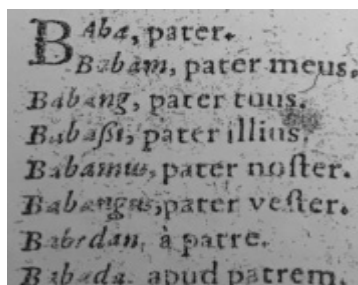 BAba, pater.
Babam, pater meus.
Babang, pater tuus.
Babaſsi, pater illius.
Babamus, pater noſter.
Babangus, pater veſter.
Babadan, à patre.
Babada, apud patrem.